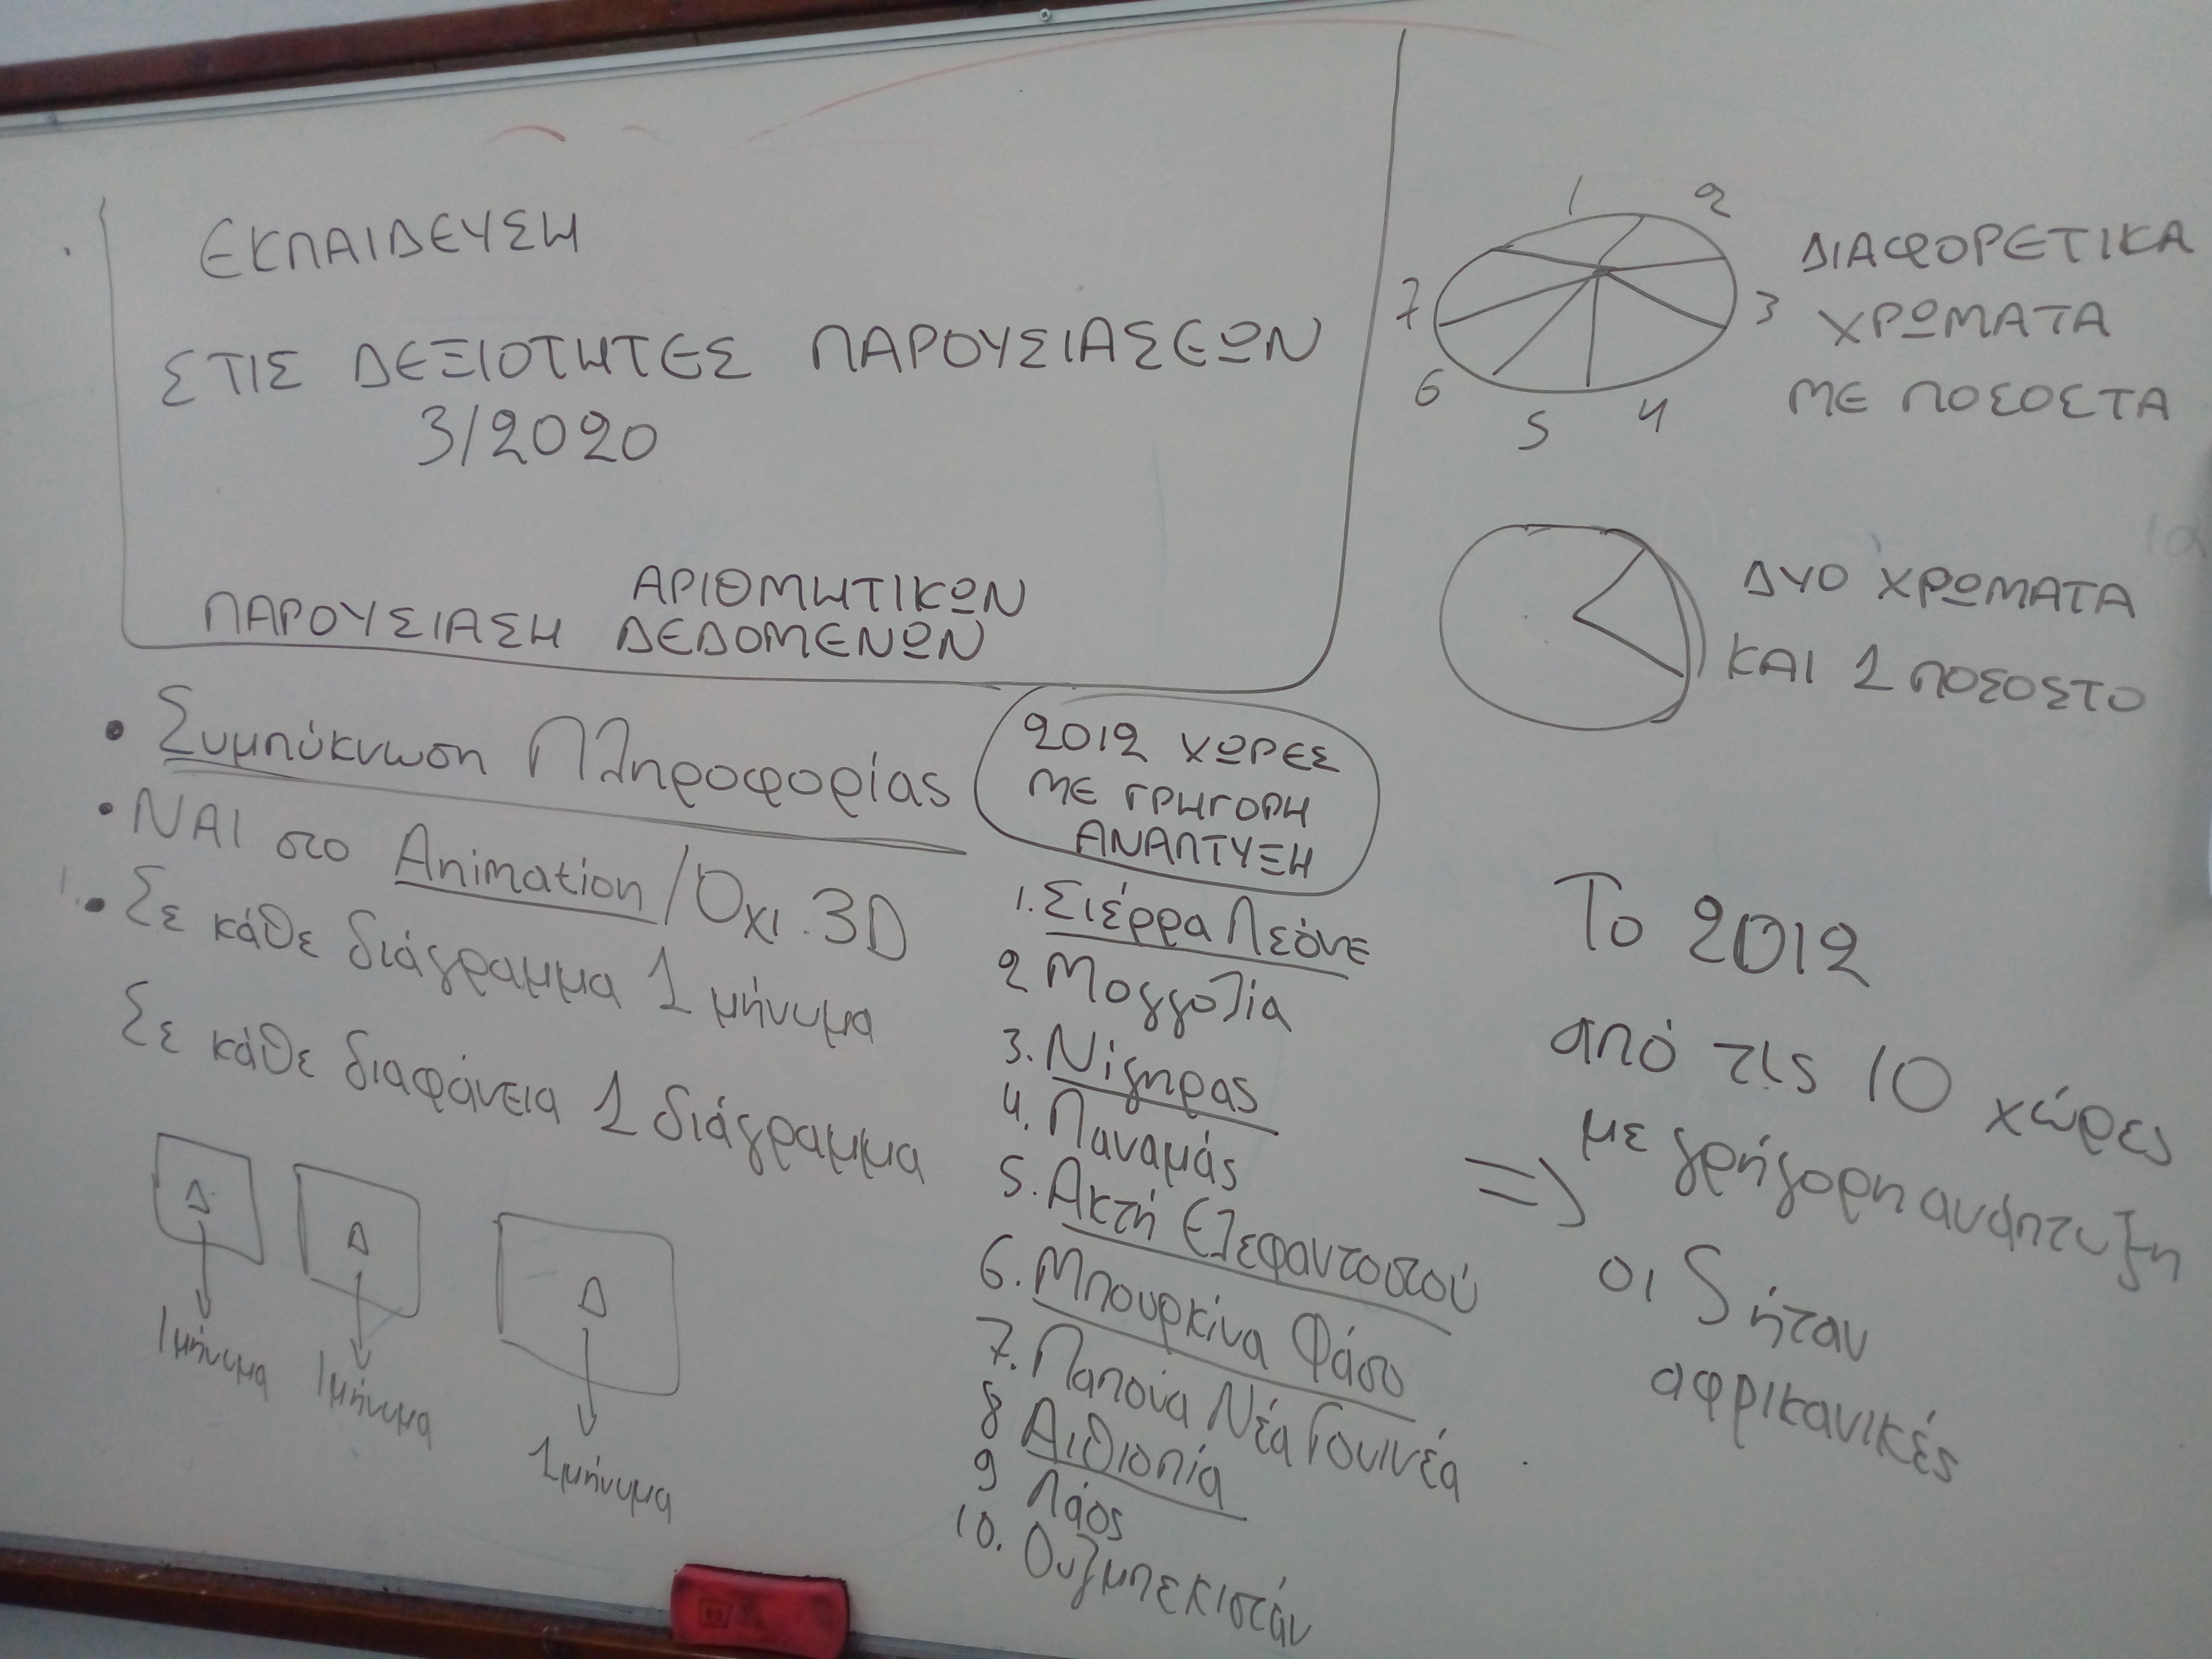 ΕΚΠΑΙΔΕΥΣΗ
ΣΤΙΣ ΔΕΞΙΟΤΗΤΕΣ ΠΑΡΟΥΣΙΑΣΕΩΝ
3/2020
ΑΡΙΘΜΗΤΙΚΩΝ
ΠΑΡΟΥΣΙΑΣΗ ΔΕΔΟΜΕΝΩΝ
• Συμπύκνωση Πληροφορίας
• ΝΑΙ στο Animation / Όχι 3D
• Σε κάθε διάγραμμα 1 μήνυμα
Σε κάθε διαφάνεια 1 διάγραμμα
Δ
Δ
Δ
1 μήνυμα
1 μήνυμα
1 μήνυμα
2012 ΧΩΡΕΣ
ΜΕ ΓΡΗΓΟΡΗ
ΑΝΑΠΤΥΞΗ
1. Σιέρρα Λεόνε
2 Μογγολία
3. Νίγηρας
4. Παναμάς
5. Ακτή Ελεφαντοστού
6. Μπουρκίνα Φάσο
7. Παπούα Νέα Γουινέα
8 Αιθιοπία
9 Λάος
10. Ουζμπεκιστάν
1
2
3
4
5
6
7
ΔΙΑΦΟΡΕΤΙΚΑ
ΧΡΩΜΑΤΑ
ΜΕ ΠΟΣΟΣΤΑ
ΔΥΟ ΧΡΩΜΑΤΑ
ΚΑΙ 1 ΠΟΣΟΣΤΟ
Το 2012
από τις 10 χώρες
=> με γρήγορη ανάπτυξη
οι 5 ήταν
αφρικανικές